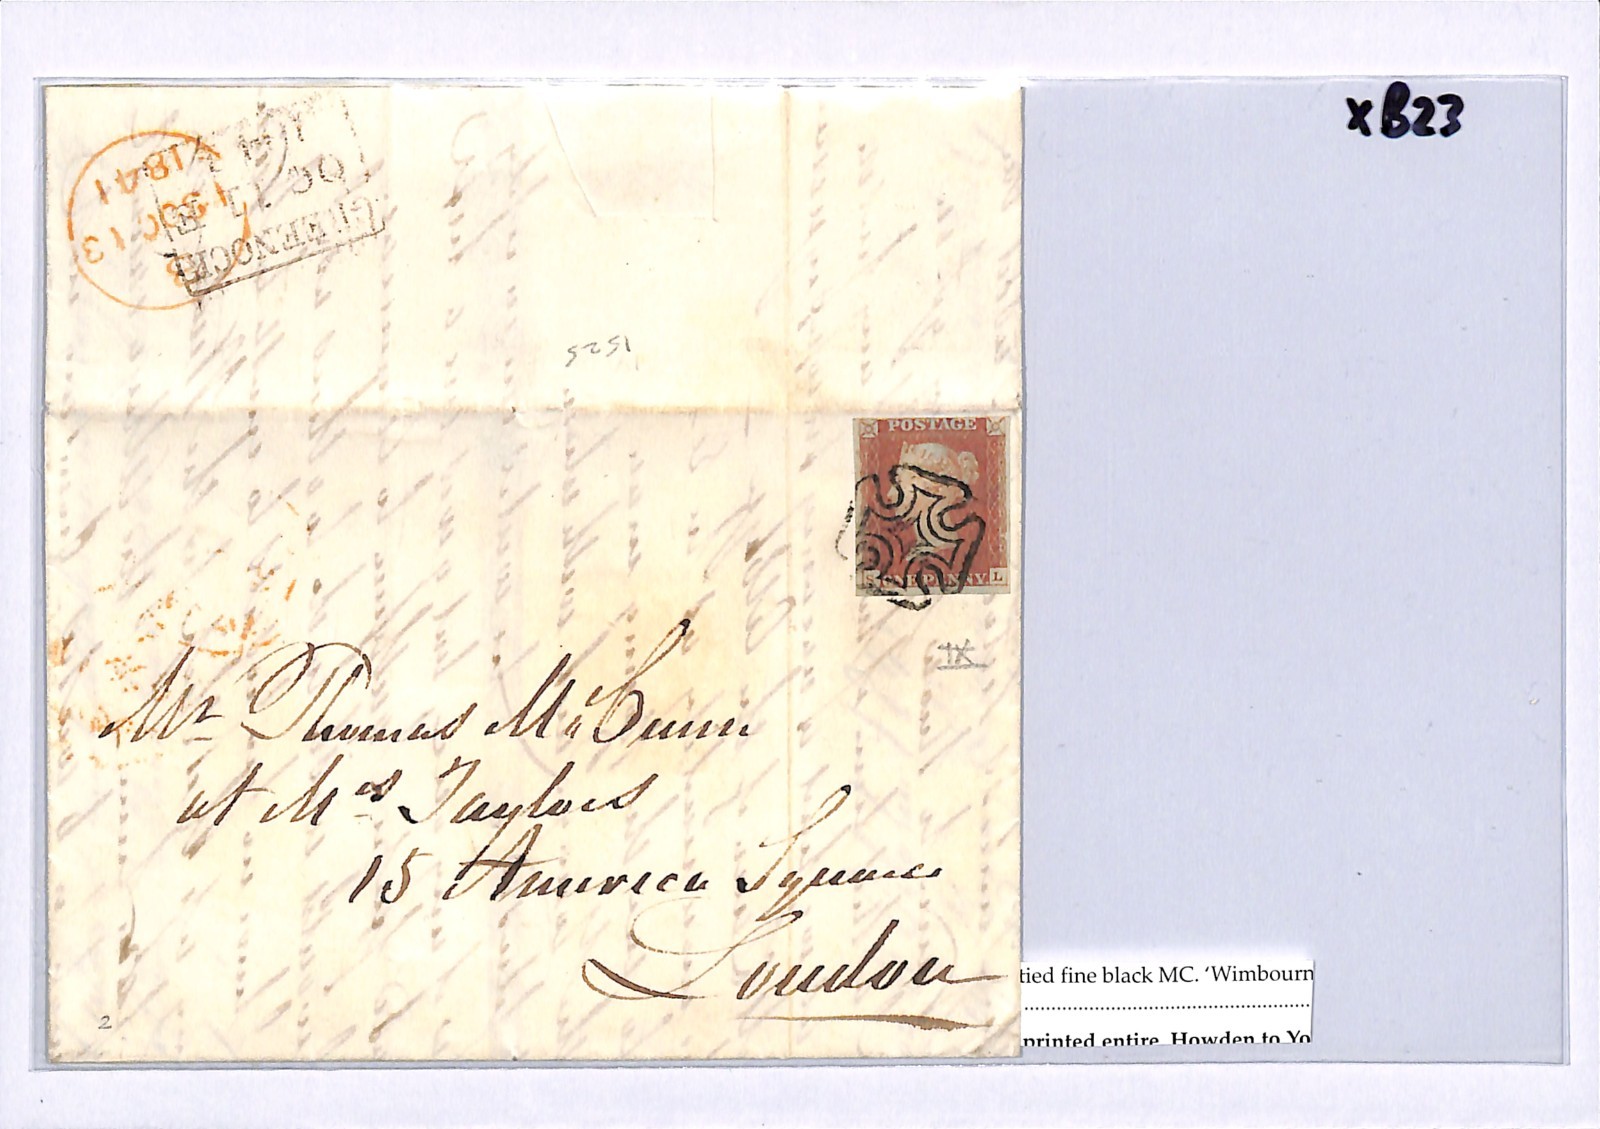 xB23
GREENOCK
OC 11
1841
B
13 OC 13
1841
5251
POSTAGE
S ONE PENNY L
IX
Mr Thomas McCunn
at Mrs Taylors
15 America Square
London
2
tied fine black MC. 'Wimbourn
printed entire, Howden to Yo